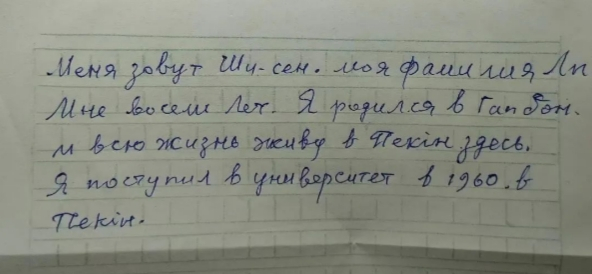 Меня зовут Шу-сен. моя фамилия Лп
Мне восем Лет. Я родился в Гапбон.
и всю жизнь живу в Пекін здесь.
Я поступил в университет в 1960. в
Пекін.